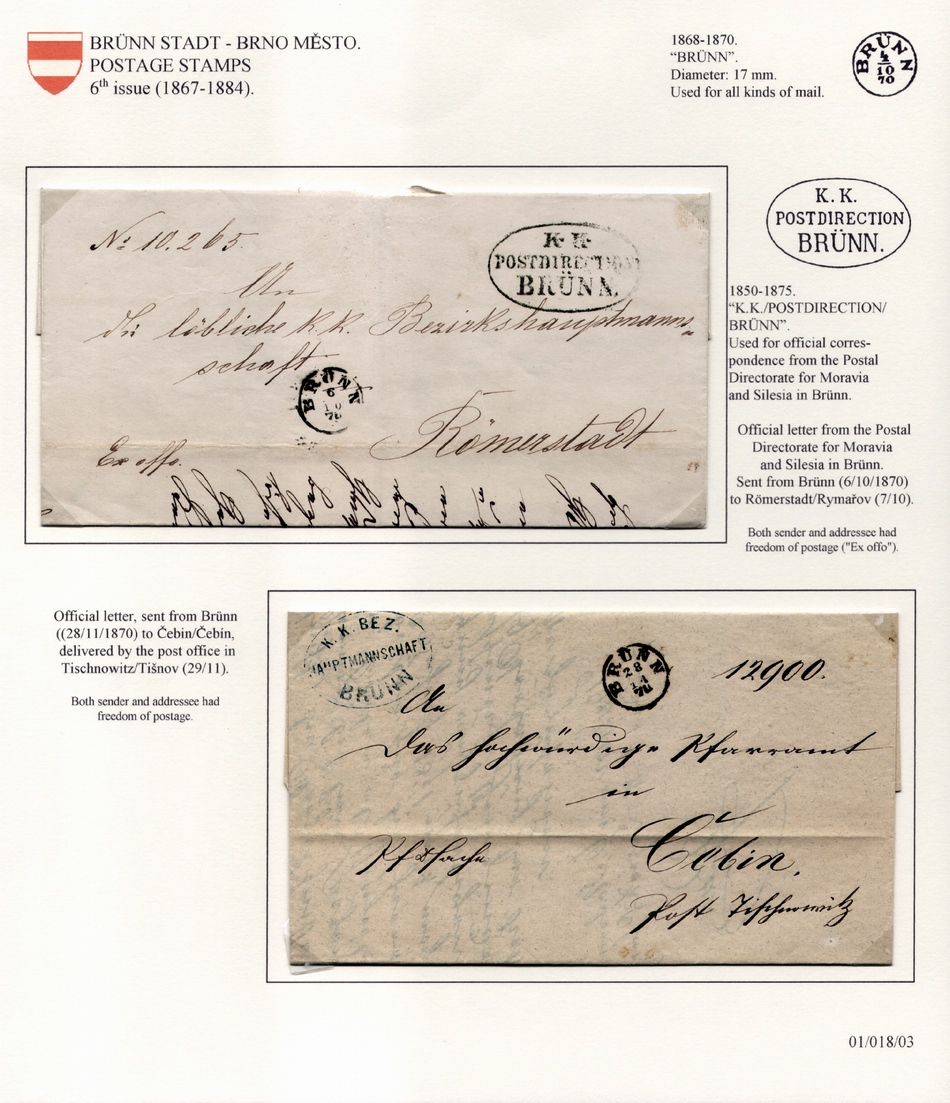 BRÜNN STADT - BRNO MĚSTO.
POSTAGE STAMPS
6th issue (1867-1884).
1868-1870.
“BRÜNN”.
Diameter: 17 mm.
Used for all kinds of mail.
BRÜNN
4
10
70
K. K.
POSTDIRECTION
BRÜNN.
1850-1875.
“K.K./POSTDIRECTION/
BRÜNN”.
Used for official corres-
pondence from the Postal
Directorate for Moravia
and Silesia in Brünn.
Official letter from the Postal
Directorate for Moravia
and Silesia in Brünn.
Sent from Brünn (6/10/1870)
to Römerstadt/Rymařov (7/10).
Both sender and addressee had
freedom of postage ("Ex offo").
No 10.265.
K. K.
POSTDIRECTION
BRÜNN.
An
die löbliche k.k. Bezirkshauptmann-
schaft
BRÜNN
6
10
70
Römerstadt
Ex offo.
Official letter, sent from Brünn
((28/11/1870) to Čebin/Čebín,
delivered by the post office in
Tischnowitz/Tišnov (29/11).
Both sender and addressee had
freedom of postage.
K. K. BEZ.
HAUPTMANNSCHAFT
BRÜNN
BRÜNN
28
11
12900.
An
das hochwürdige Pfarramt
in
Čebin.
Post Tischnowitz
01/018/03